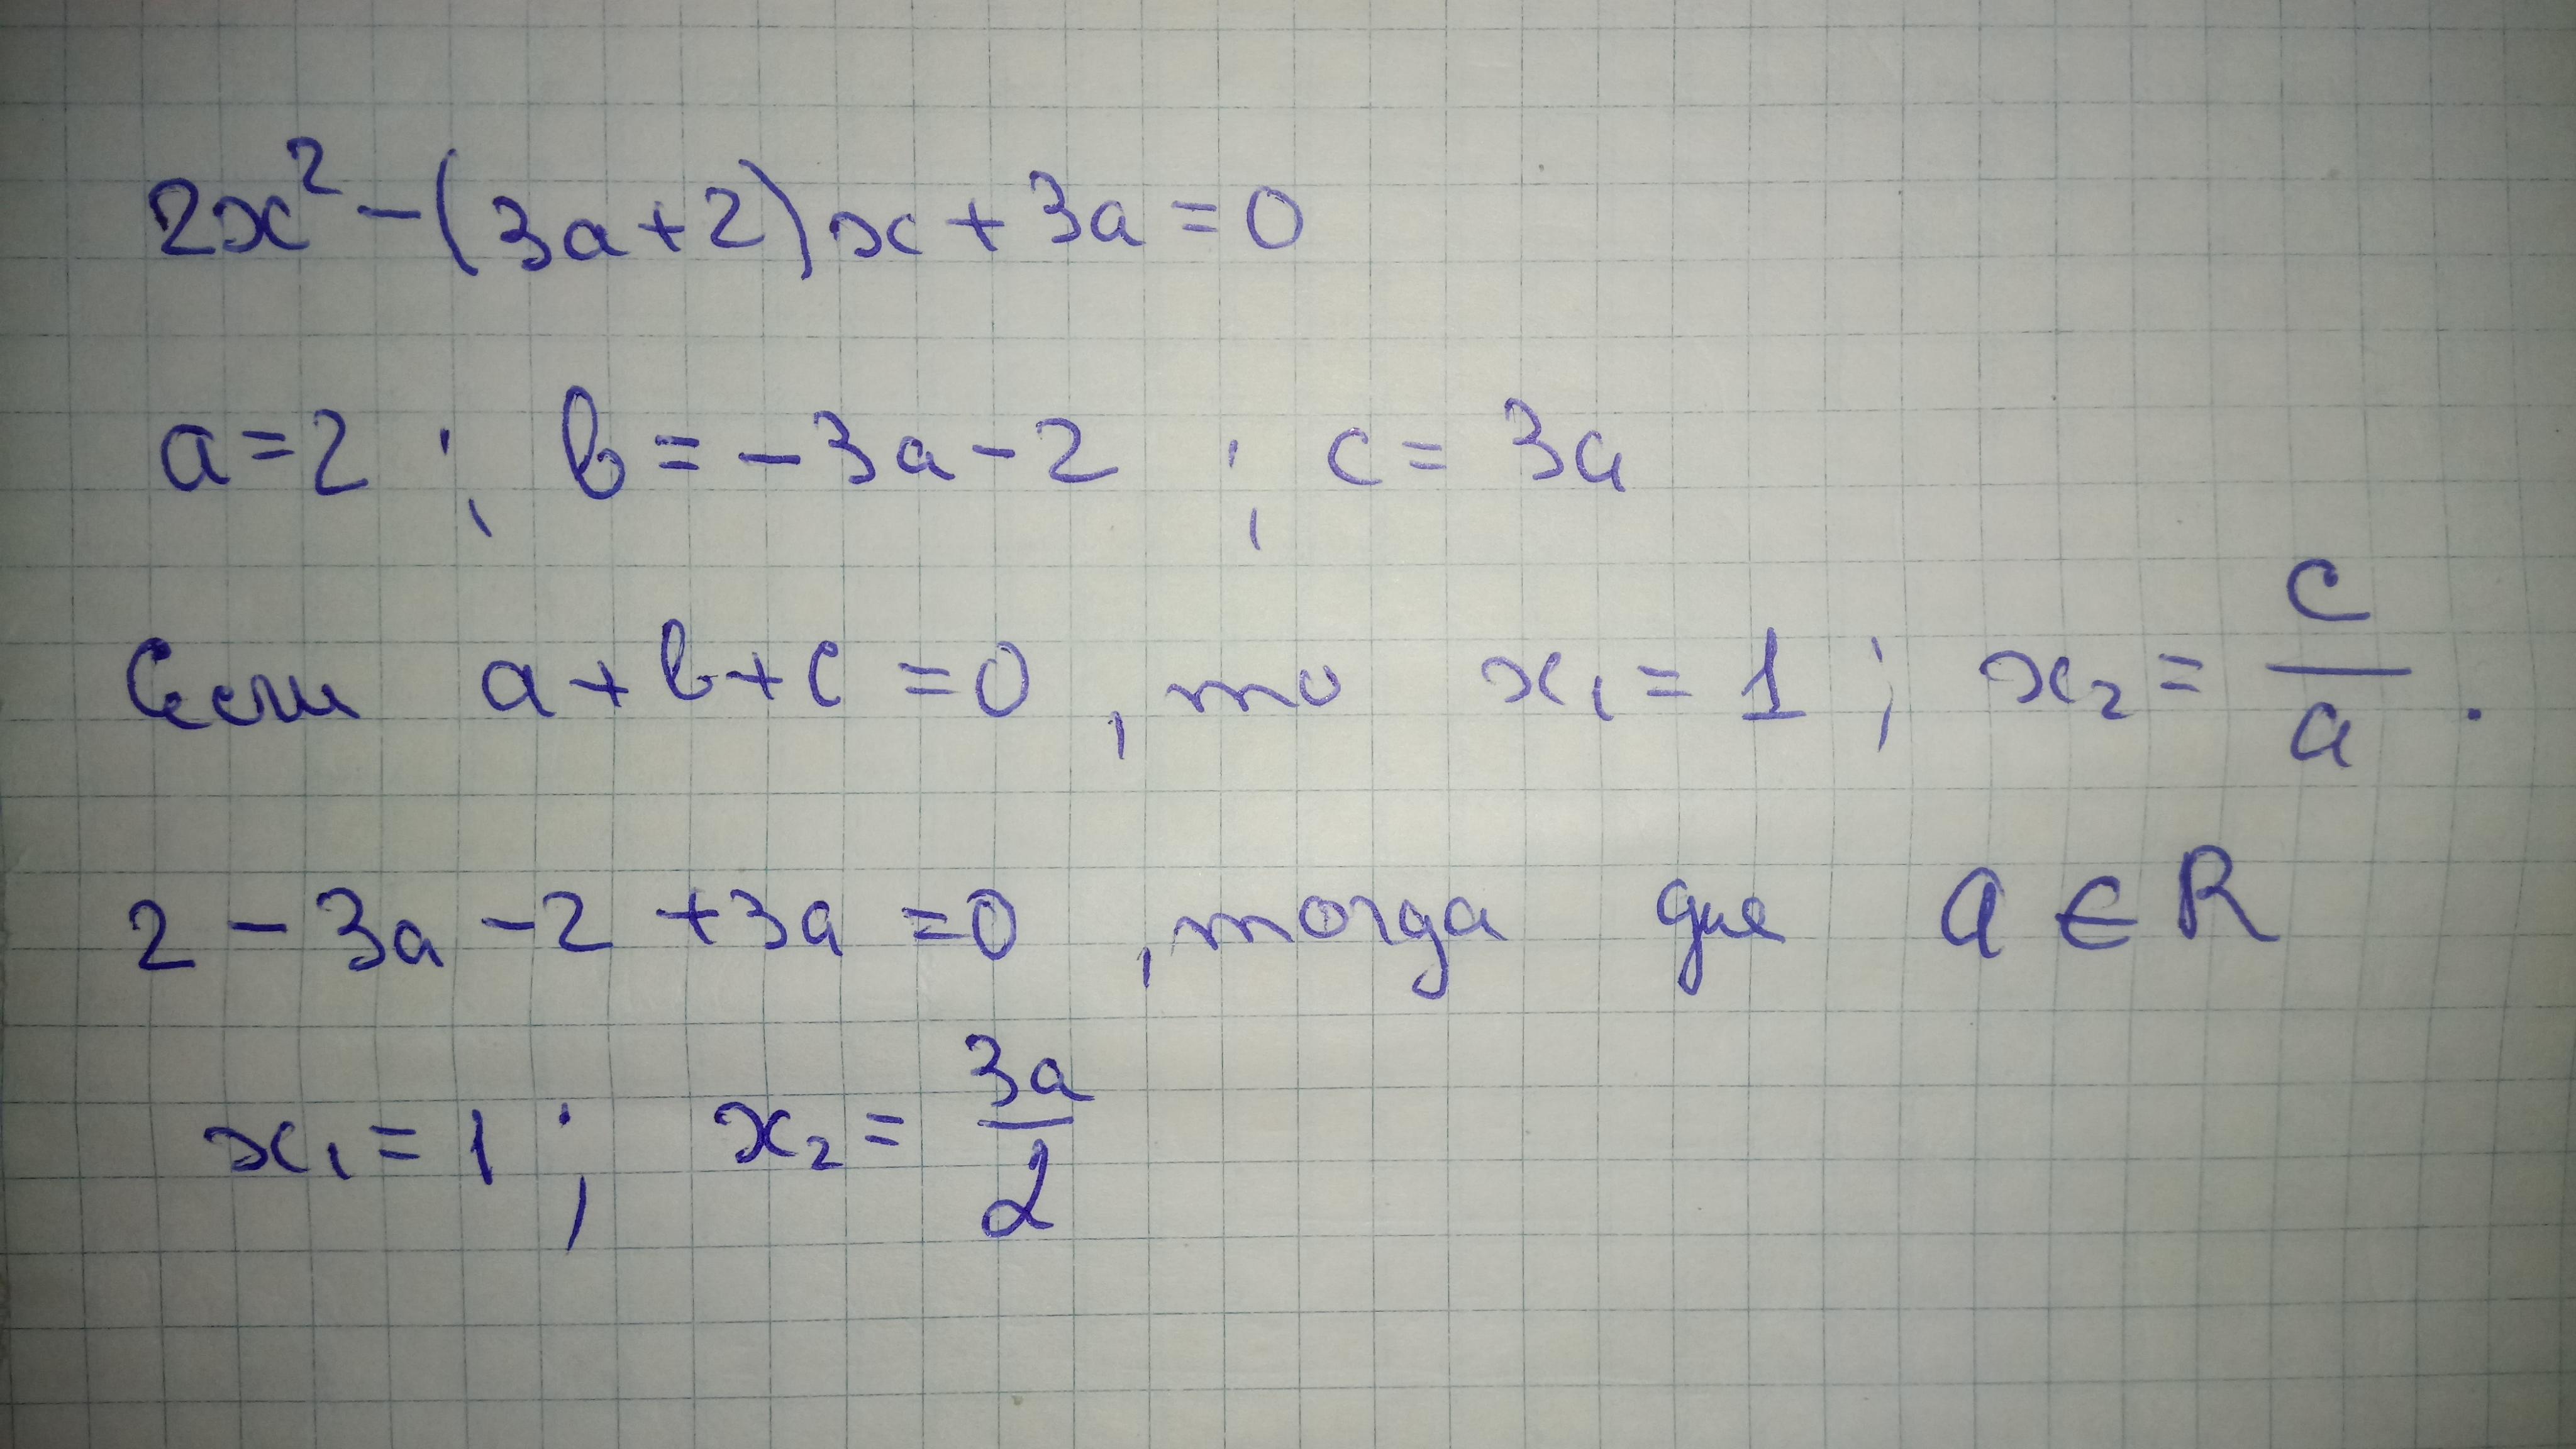 2x² - (3a + 2)x + 3a = 0
a = 2 ; b = -3a - 2 ; c = 3a
Если a + b + c = 0 , то x₁ = 1 ; x₂ = c/a .
2 - 3a - 2 + 3a = 0 , тогда для a ∈ R
x₁ = 1 ; x₂ = 3a/2